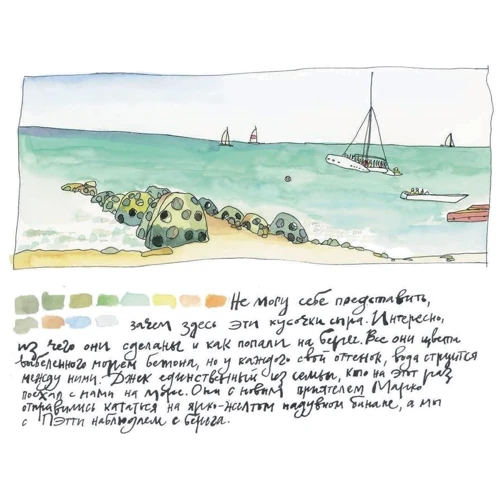 Не могу себе представить,
зачем здесь эти кусочки сыра. Интересно,
из чего они сделаны и как попали на берег. Все они цвета
выбеленного морем бетона, но у каждого свой оттенок, вода струится
между ними. Джек единственный из семьи, кто на этот раз
поехал с нами на море. Они с новым приятелем Марко
отправились кататься на ярко-желтом надувном банане, а мы
с Пэтти наблюдаем с берега.